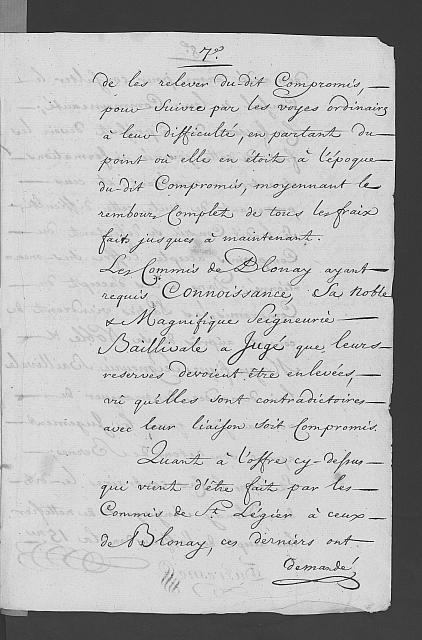 7.º
de les relever du-dit Compromis,
pour suivre par les voyes ordinaires
à leur difficulté, en partant du
point où elle en étoit à l'époque
du-dit Compromis, moyennant le
rembours Complet de tous les fraix
faits jusques à maintenant.
Les Commis de Blonay ayant
requis Connoissance, Sa Noble
& Magnifique Seigneurie
Baillivale a Jugé que leurs
reserves devoient être enlevées,
vû qu'elles sont contradictoires
avec leur liaison soit Compromis.
Quant à l'offre cy-dessus
qui vient d'être fait par les
Commis de St. Légier à ceux
de Blonay, ces derniers ont
demandé